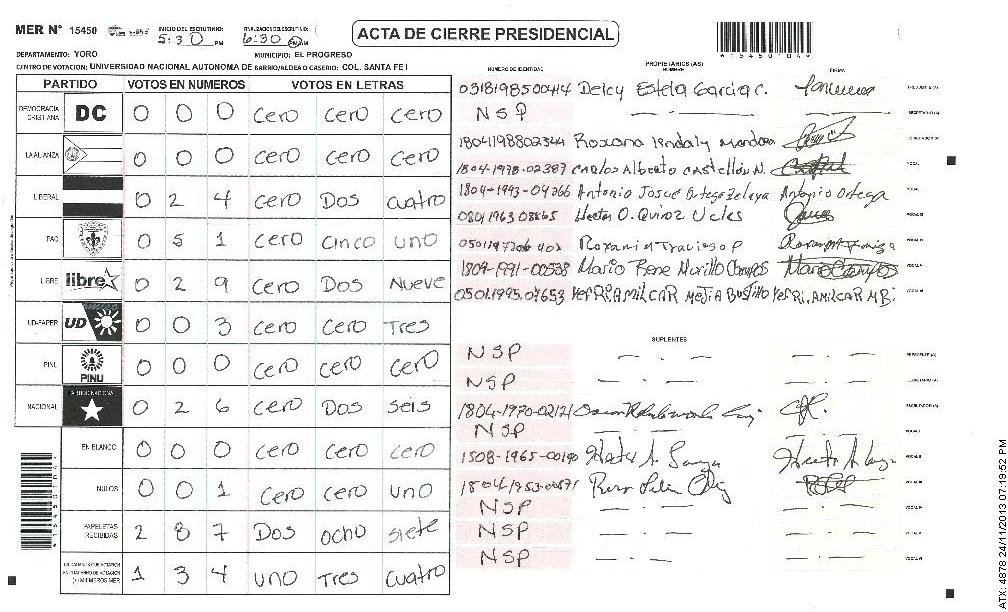 MER N° 15450
INICIO DEL ESCRUTINIO: 5:30 PM
FINALIZACION DEL ESCRUTINIO: 6:30 PM
ACTA DE CIERRE PRESIDENCIAL
DEPARTAMENTO: YORO
MUNICIPIO: EL PROGRESO
CENTRO DE VOTACION: UNIVERSIDAD NACIONAL AUTONOMA DE BARRIO/ALDEA O CASERIO: COL. SANTA FE I
PARTIDO VOTOS EN NUMEROS VOTOS EN LETRAS
DEMOCRACIA CRISTIANA DC 0 0 0 cero cero cero
LA ALIANZA 0 0 0 cero cero cero
LIBERAL 0 2 4 cero Dos cuatro
PAC 0 5 1 cero cinco uno
LIBRE libre 0 2 9 cero Dos Nueve
UD-FAPER UD 0 0 3 cero cero Tres
PINU PINU 0 0 0 cero cero cero
NACIONAL 0 2 6 cero Dos seis
EN BLANCO 0 0 0 cero cero cero
NULOS 0 0 1 cero cero uno
PAPELETAS RECIBIDAS 2 8 7 Dos ocho siete
1 3 4 uno Tres cuatro
PROPIETARIOS (AS)
NUMERO DE IDENTIDAD NOMBRE FIRMA
0318198500414 Delcy Estela Garcia C.
NSP
1804198802344 Roxana
1804-1978-02387 Carlos Alberto Castellón N.
1804-1993-04266 Antonio Josue Ortega Zelaya Antonio Ortega
Hector O. Quiroz Ucles
1804-1991-00538 Mario Rene Murillo Campos Mario Campos
0501.1995.07653 Yerri Amilcar Mejia Bustillo Yerri Amilcar M B.
SUPLENTES
NSP
NSP
NSP
Hector A.
NSP
NSP
NSP
ATX: 4878 24/11/2013 07:19:52 PM